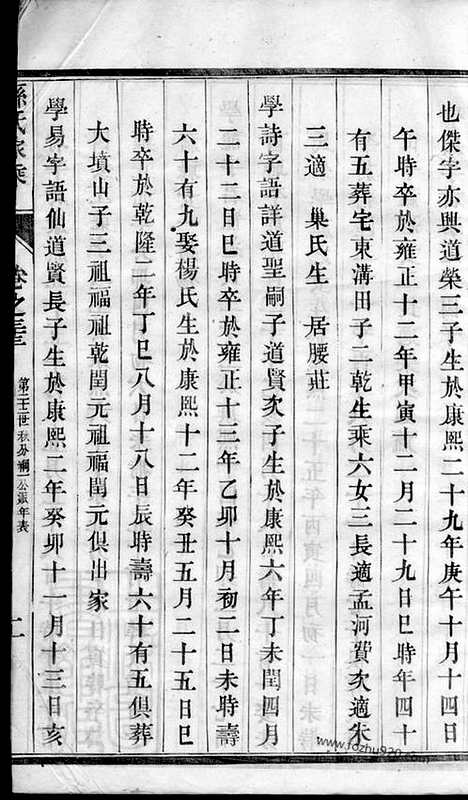 也傑字亦興道榮三子生於康熙二十九年庚午十月十四日
午時卒於雍正十二年甲寅十二月二十九日巳時年四十
有五葬宅東溝田子二乾生乘六女三長適孟河費次適朱
三適 巢氏生 居腰莊
學詩字語詳道聖嗣子道賢次子生於康熙六年丁未閏四月
二十二日巳時卒於雍正十三年乙卯十月初二日未時壽
六十有九娶楊氏生於康熙十二年癸丑五月二十五日巳
時卒於乾隆二年丁巳八月十八日辰時壽六十有五俱葬
大墳山子三祖福祖乾閏元祖福閏元俱出家
學易字語仙道賢長子生於康熙二年癸卯十一月十三日亥
孫氏家乘
卷之
第二十世秋分
公派年表
二
www.fozhu920.com